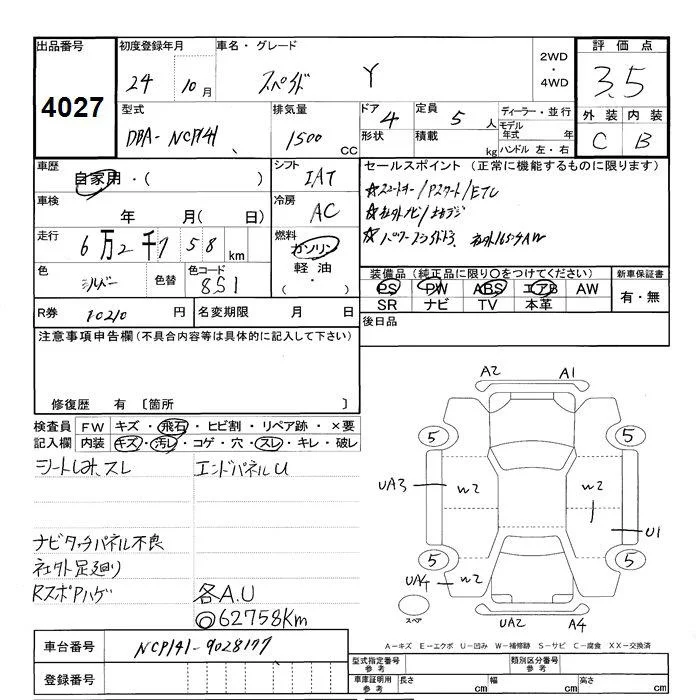 出品番号 4027
初度登録年月 24年 10月
車名・グレード スペイド Y
2WD・4WD
評価点 3.5
外装 C 内装 B
型式 DBA-NCP141
排気量 1500 CC
ドア 4 形状
定員 5 人 積載 kg
ディーラー・並行
モデル年式 年
ハンドル 左・右
車歴 自家用・( )
シフト IAT
車検 年 月( 日)
冷房 AC
走行 6万2千758 km
燃料 ガソリン 軽油 ・
色 シルバー 色替 色コード 851
R券 10210 円 名変期限 月 日
セールスポイント(正常に機能するものに限ります)
☆スマートキー/Pスタート/ETC
☆社外ナビ/地デジ
☆パワースライドドア 社外165インチAW
装備品(純正品に限り○をつけてください)
PS PW ABS エアB AW
SR ナビ TV 本革
新車保証書 有・無
後日品
注意事項申告欄(不具合内容等は具体的に記入して下さい)
修復歴 有 〔箇所 〕
検査員記入欄
FW キズ・飛石・ヒビ割・リペア跡・×要
内装 キズ・汚レ・コゲ・穴・スレ・キレ・破レ
シートしみ、スレ エンドパネルU
ナビタッチパネル不良
社外足廻り
RスポPハゲ 各A.U
◎62758Km
車台番号 NCP141-9028177
登録番号
A2 A1
5 5
UA3 W2 W2 U1
5 5
UA4 W2
スペア UA2 A4
A-キズ E-エクボ U-凹み W-補修跡 S-サビ C-腐食 XX-交換済
型式指定番号 参考 類別区分番号 参考
車庫証明用 参考 長さ cm 幅 cm 高さ cm